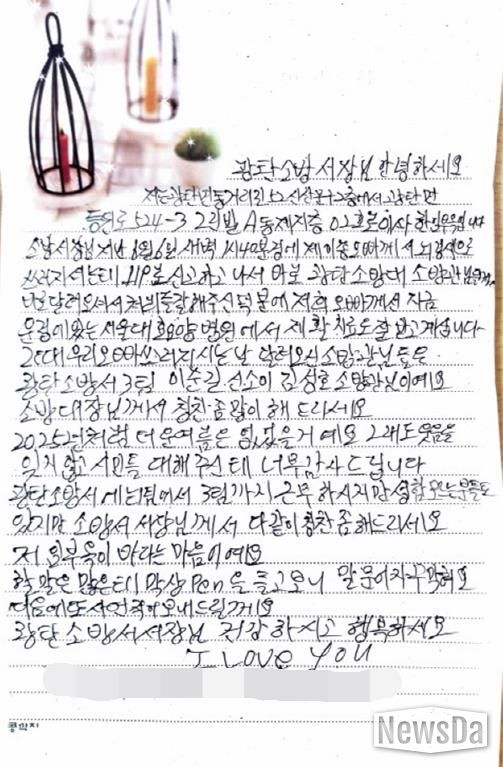 광탄소방서장님 안녕하세요
저는 광탄면
등원로 524-3 2리빌 A동 제지층 02호로 이사 한
소방서장님 지난 8월6일 새벽 1시40분경에 제 이종오빠께서 뇌경색으로
쓰러지셔는데 119로 신고하고 나서 바로 광탄소방대 소방관님들께서
달려오셔서 처치를 잘해주신 덕분에 저희 오빠께서 지금
운정에 있는 서울대효요양병원에서 재활치료도 잘 받고 계십니다
그런대 우리오빠 쓰러지시는 날 달려오신 소방관님들은
광탄소방서 3팀 이순길 선소이 김성호 소방관님이에요
소방대장님께서 칭찬좀 많이 해 드리세요
2025년처럼 더운여름은 없었을거예요 그래도 웃음을
잊지 않고 시민들 대해주신테 너무 감사드립니다
광탄소방서에 1팀에서 3팀까지 근무하시지만 성함 모르는 분들도
있지만 소방서 서장님께서 다같이 칭찬좀 해드리세요
저 외부욱이 바라는 마음이에요
할 말은 많은데 막상 Pen을 들고보니 말문이
다음에 또 사연 적어보내드릴게요
광탄소방서서장님 건강하시고 행복하세요
I LOVE YOU
콩학지
NewsDa